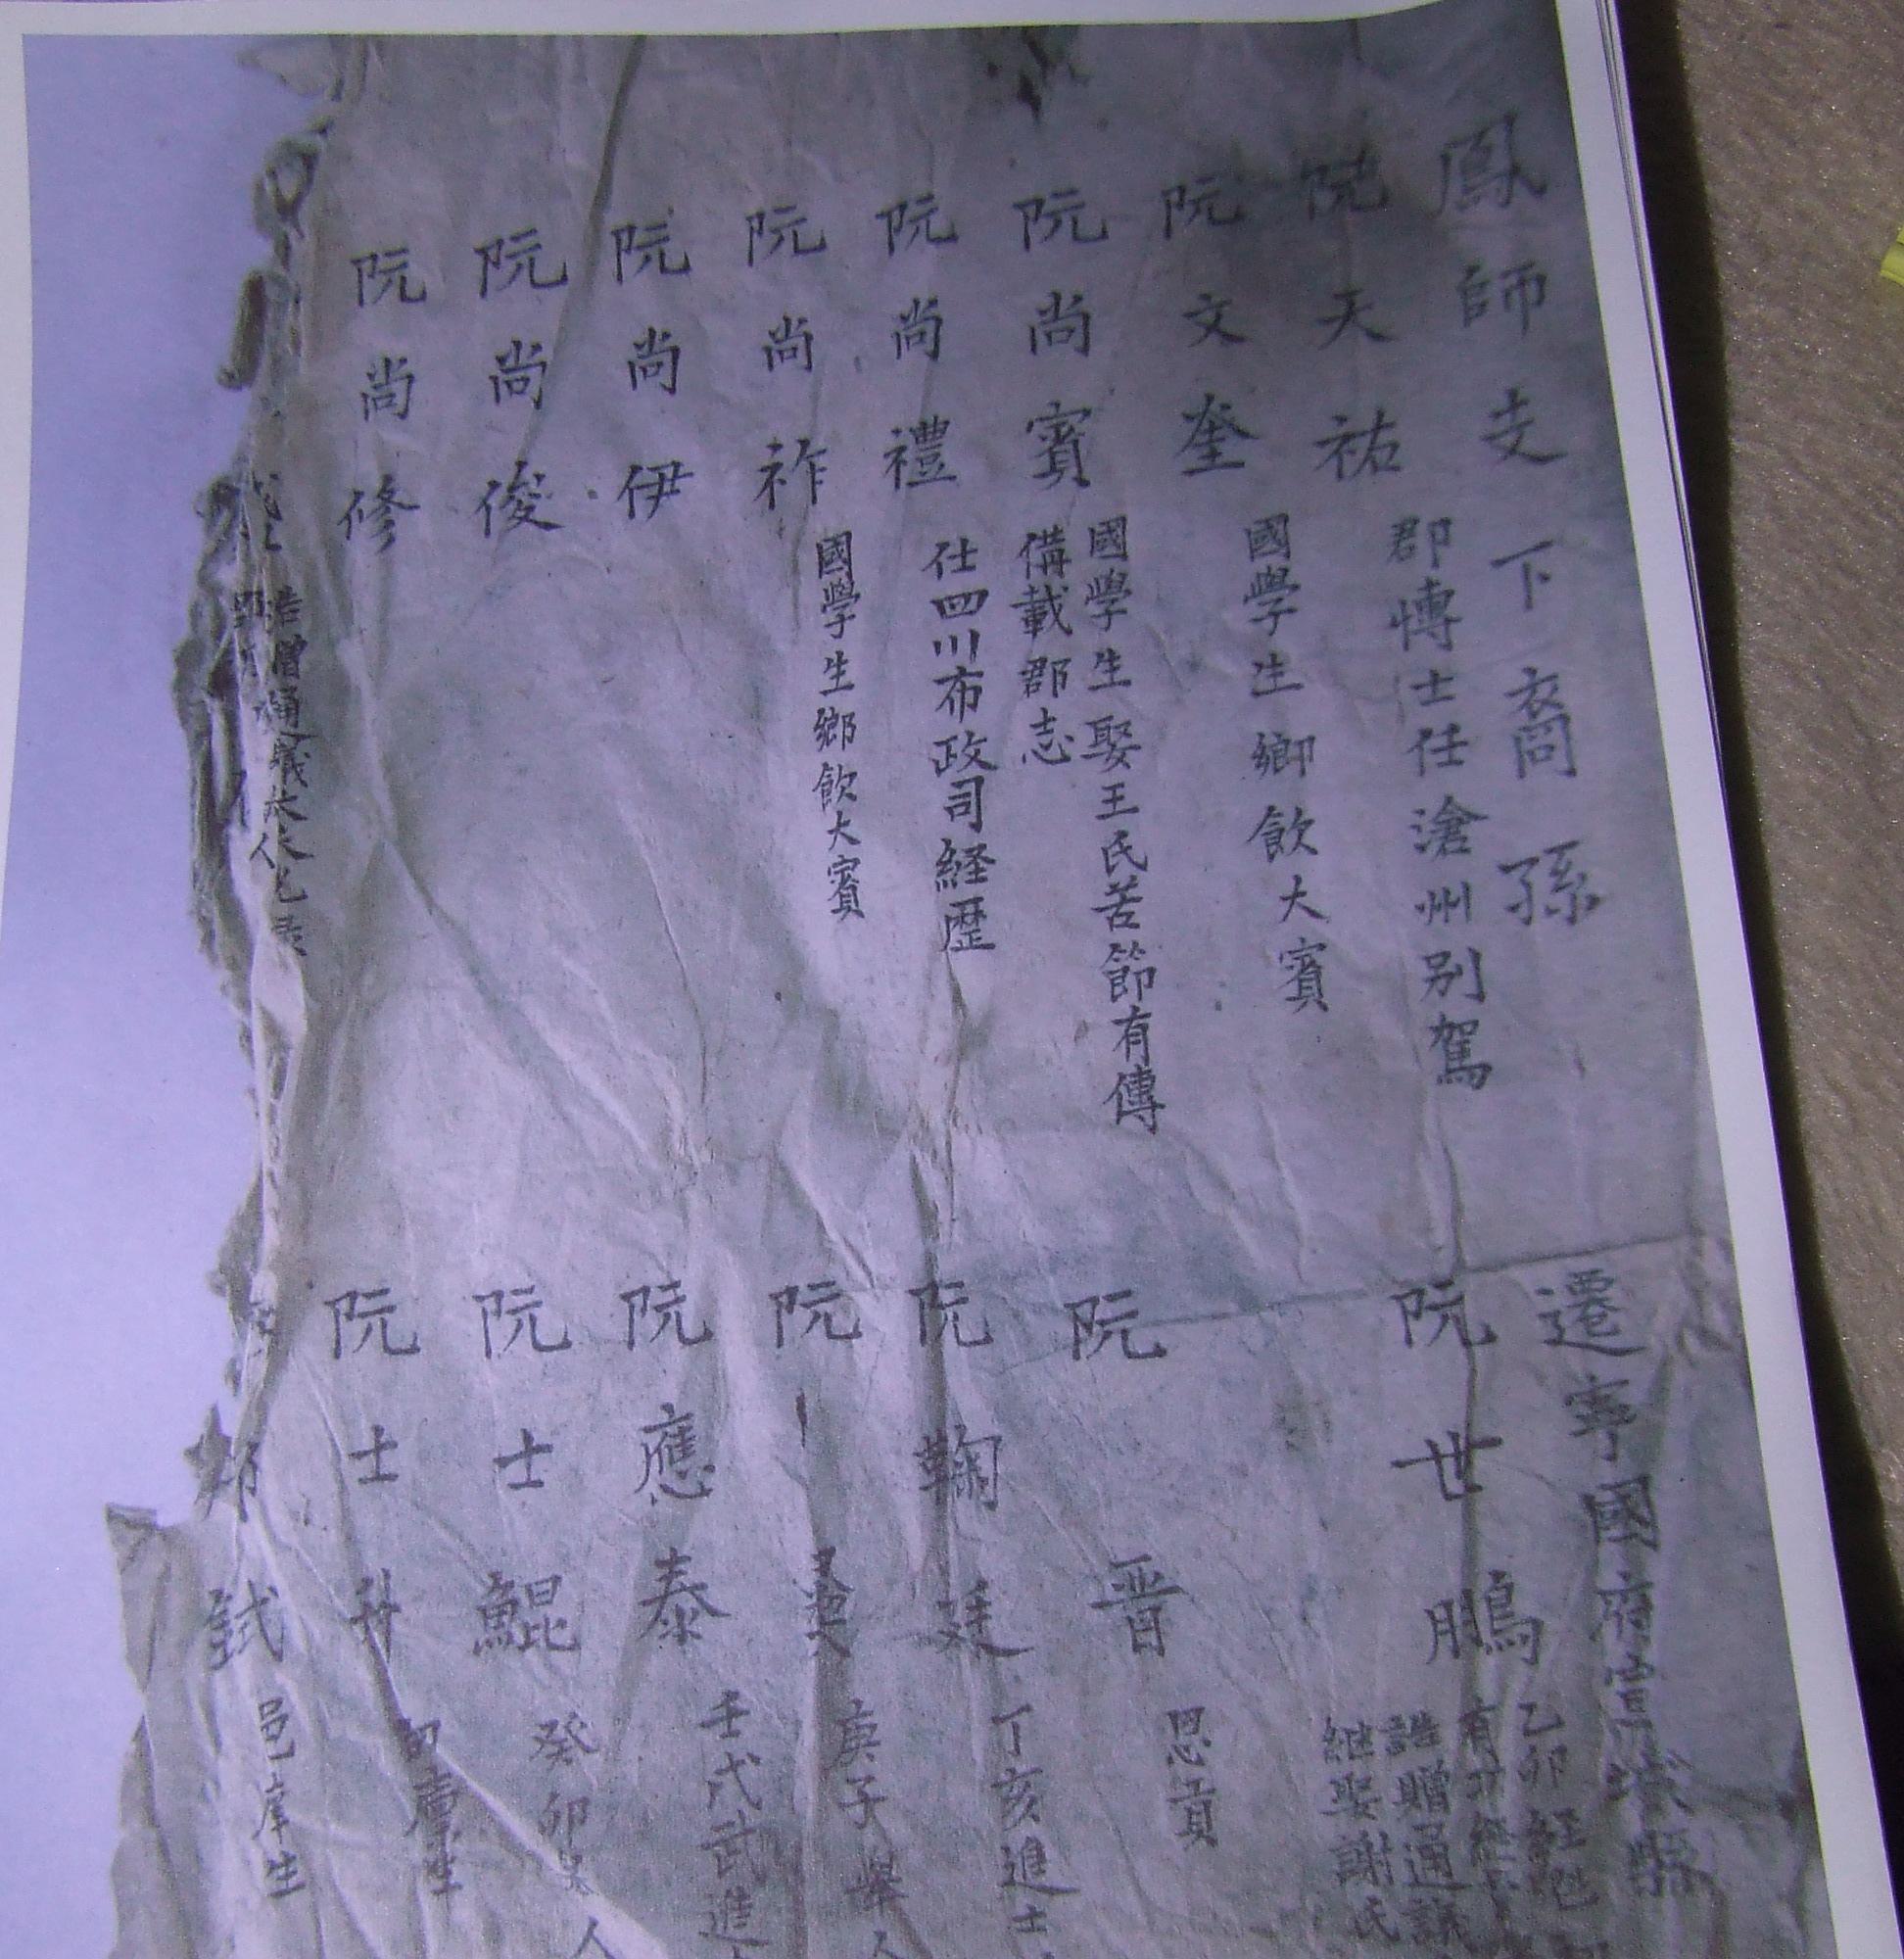 鳳師支下裔孫
阮天祐
郡博士任滄州别駕
阮文奎
國學生鄉飲大賓
阮尚賓
國學生娶王氏苦節有傳
備載郡志
阮尚禮
仕四川布政司経歴
阮尚祚
國學生鄉飲大賓
阮尚伊
阮尚俊
阮尚修
遷寧國府宣城縣
阮世鵬
乙卯
誥贈通議
継娶謝氏
阮晋
恩貢
阮鞠廷
丁亥進士
阮
庚子舉人
阮應泰
壬戌武進
阮士鯤
癸卯 人
阮士升
試
邑庠生